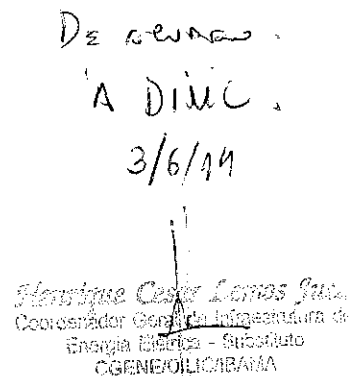 De acordo.
À DILIC.
3/6/14
Henrique Cesar Lemos
Coordenador Geral de Infraestrutura de
Energia Elétrica - Substituto
CGENE/DILIC/IBAMA